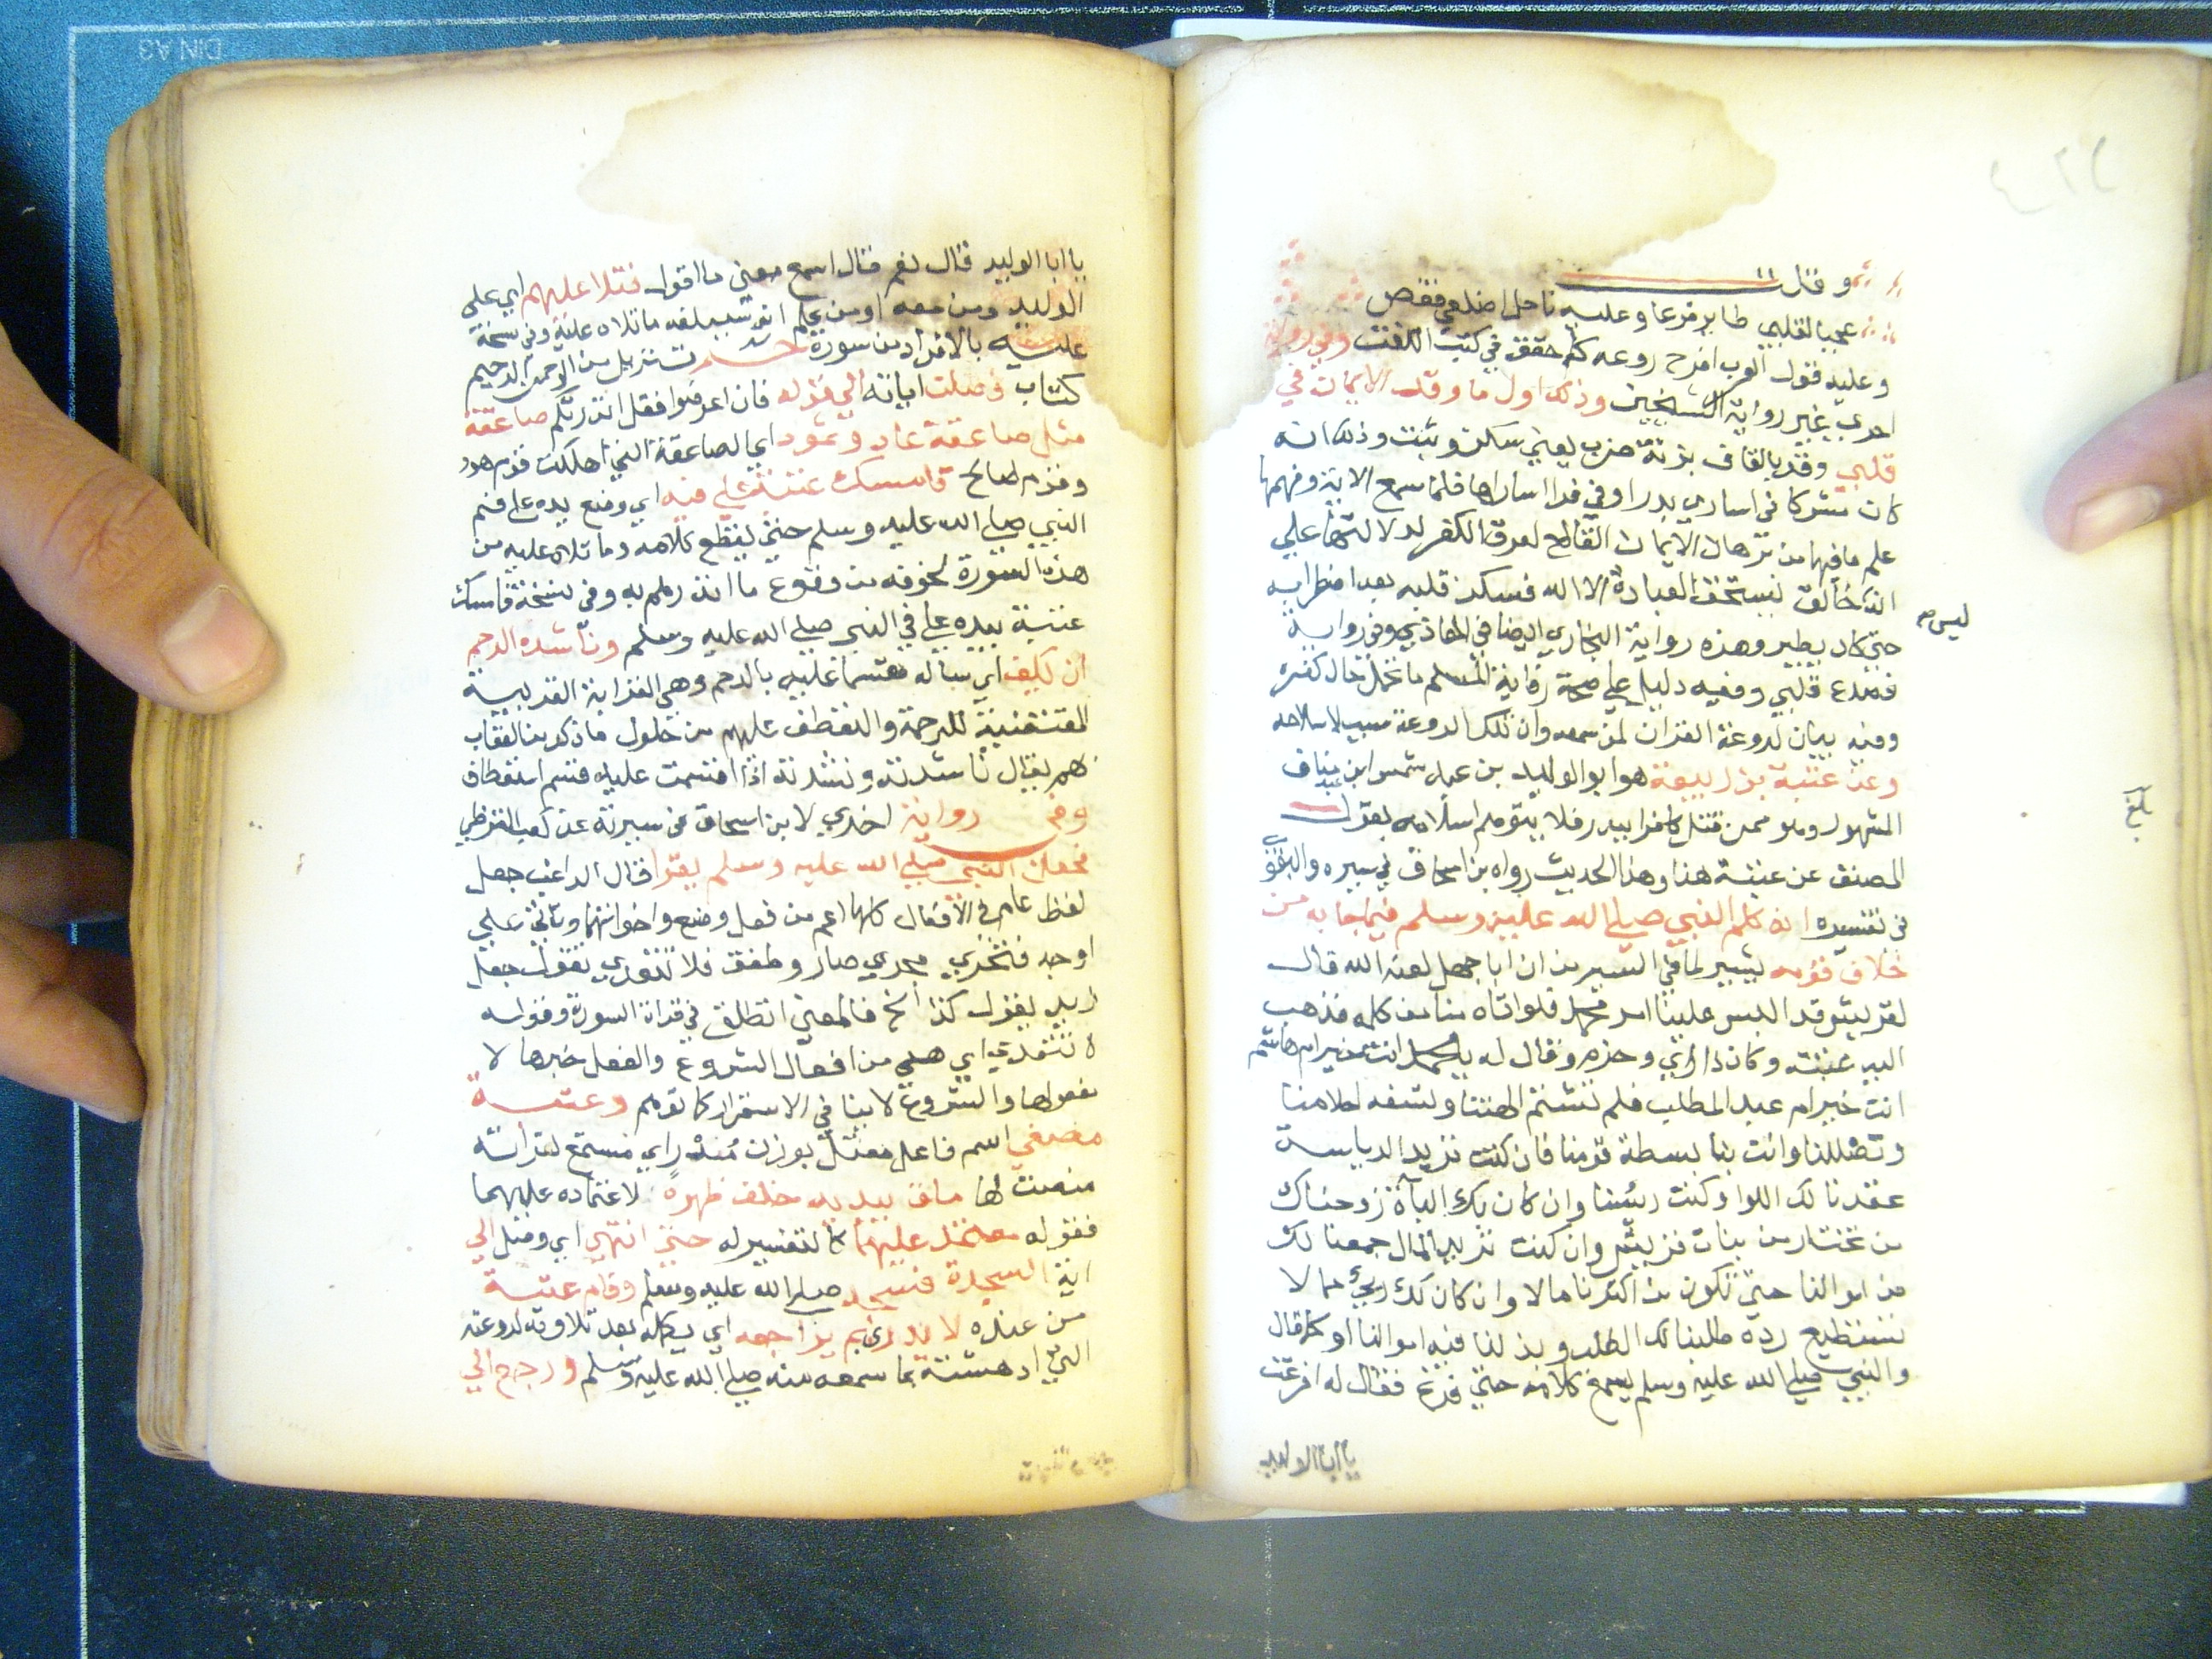 وقال
عجبا لقلبي طاير فزعا وعليه ناحل اضلعي قفص
وعليه قول العرب افرخ روعه كما حقق في كتب اللغة وفي رواية
اخري غير رواية الشيخين وذلك اول ما وقر الايمان في
قلبي وقر بالقاف بزنة ضرب يعني سكن وثبت وذلك انه
كان مشركا في اساري بدر او في فدا اساراها فلما سمع الاية وفهمها
علم ما فيها من برهان الايمان القالع لعرق الكفر لدلالتها علي
انه خالق يستحق العبادة الا الله فسكن قلبه بعد اضطرابه
ليس صح
حتي كاد يطير وهذه رواية البخاري ايضا في المغازي وفي رواية
فصدع قلبي وفيه دليل علي صحة رواية المسلم ما تحمل حال كفره
وفيه بيان لروعة القران لمن سمعه وان تلك الروعة سبب لاسلامه
وعن عتبة بن ربيعة هو ابو الوليد بن عبد شمس ابن عبد مناف
المشهور وهو ممن قتل كافرا ببدر فلا يتوهم اسلامه بقول
بلغ
المصنف عن عتبة هذا وهذا الحديث رواه بن اسحاق في سيره والبغوي
في تفسيره انه كلم النبي صلي الله عليه وسلم فيما جا به من
خلاف قومه يشير لما في السير من ان ابا جهل لعنه الله قال
لقريش قد البس علينا امر محمد فلو اتاه منا من كلمه فذهب
اليه عتبة وكان ذا راي وحزم وقال له يا محمد انت خير ام هاشم
انت خير ام عبد المطلب فلم تشتم الهتنا وتسفه احلامنا
وتضللنا وانت بنا بسطة قومنا فان كنت تريد الرياسة
عقدنا لك اللوا وكنت رئيسنا وان كان بك الباة زوجناك
من تختار من بنات قريش وان كنت تريد المال جمعنا لك
من اموالنا حتي تكون من اكثرنا مالا وان كان لك رئي مما لا
تستطيع رده طلبنا لك الطب وبذلنا فيه اموالنا او كما قال
والنبي صلي الله عليه وسلم يسمع كلامه حتي فرغ فقال له افرغت
يا ابا الوليد
يا ابا الوليد قال نعم فقال اسمع مني ما اقول فتلا عليهم اي علي
الوليد ومن معه او من علم انه سيبلغه ما تلاه عليه وفي نسخة
عليه بالافراد من سورة حم تنزيل من الرحمن الرحيم
كتاب فصلت اياته الي قوله فان اعرضوا فقل انذرتكم صاعقة
مثل صاعقة عاد وثمود اي الصاعقة التي اهلكت قوم هود
وقوم صالح فامسك عتبة علي فيه اي وضع يده علي فم
النبي صلي الله عليه وسلم حتي ليقطع كلامه وما تلاه عليه من
هذه السورة لخوفه من وقوع ما انذرهم به وفي نسخة فامسك
عتبة بيده علي في النبي صلي الله عليه وسلم وناشده الرحم
ان يكف اي ساله مقسما عليه بالرحم وهي القرابة القريبة
المقتضية للرحمة والتعطف عليهم من حلول ما ذكر من العقاب
بهم يقال ناشدته ونشدته اذا اقسمت عليه قسم استعطاف
وفي رواية اخري لابن اسحاق في سيرته عن كعب القرظي
فجعل النبي صلي الله عليه وسلم يقرا قال الراغب جعل
لفظ عام في الافعال كلها اعم من فعل وصنع واخواتهما وتاتي علي
اوجه فتجري مجري صار وطفق فلا تتعدي تقول جعل
زيد يقول كذا الخ فالمعني انطلق في قراة السورة وقوله
لا تتعدي اي هي من افعال الشروع والفعل خبرها لا
مفعولها والشروع لا ينافي الاستمرار كما توهم وعتبة
مصغي اسم فاعل معتل بوزن مُنذرٍ اي مستمع لقراءته
منصت لها ملق بيديه خلف ظهره لاعتماده عليهما
فقوله معتمد عليهما كالتفسير له حتي انتهي اي وصل الي
اية السجدة فسجد صلي الله عليه وسلم وقام عتبة
من عنده لا يدري بم يراجعه اي يكلمه بعد تلاوته لروعته
التي ادهشته بما سمعه منه صلي الله عليه وسلم ورجع الي